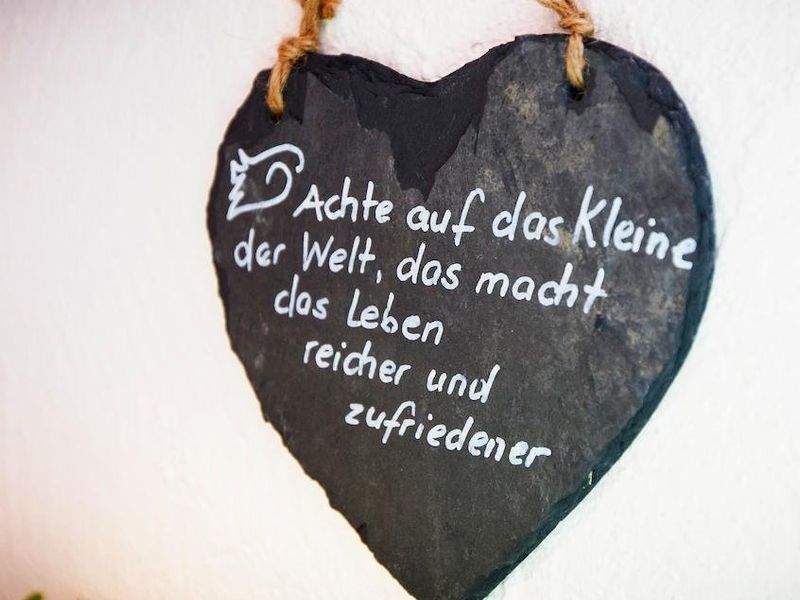 Achte auf das Kleine
der Welt, das macht
das Leben
reicher und
zufriedener